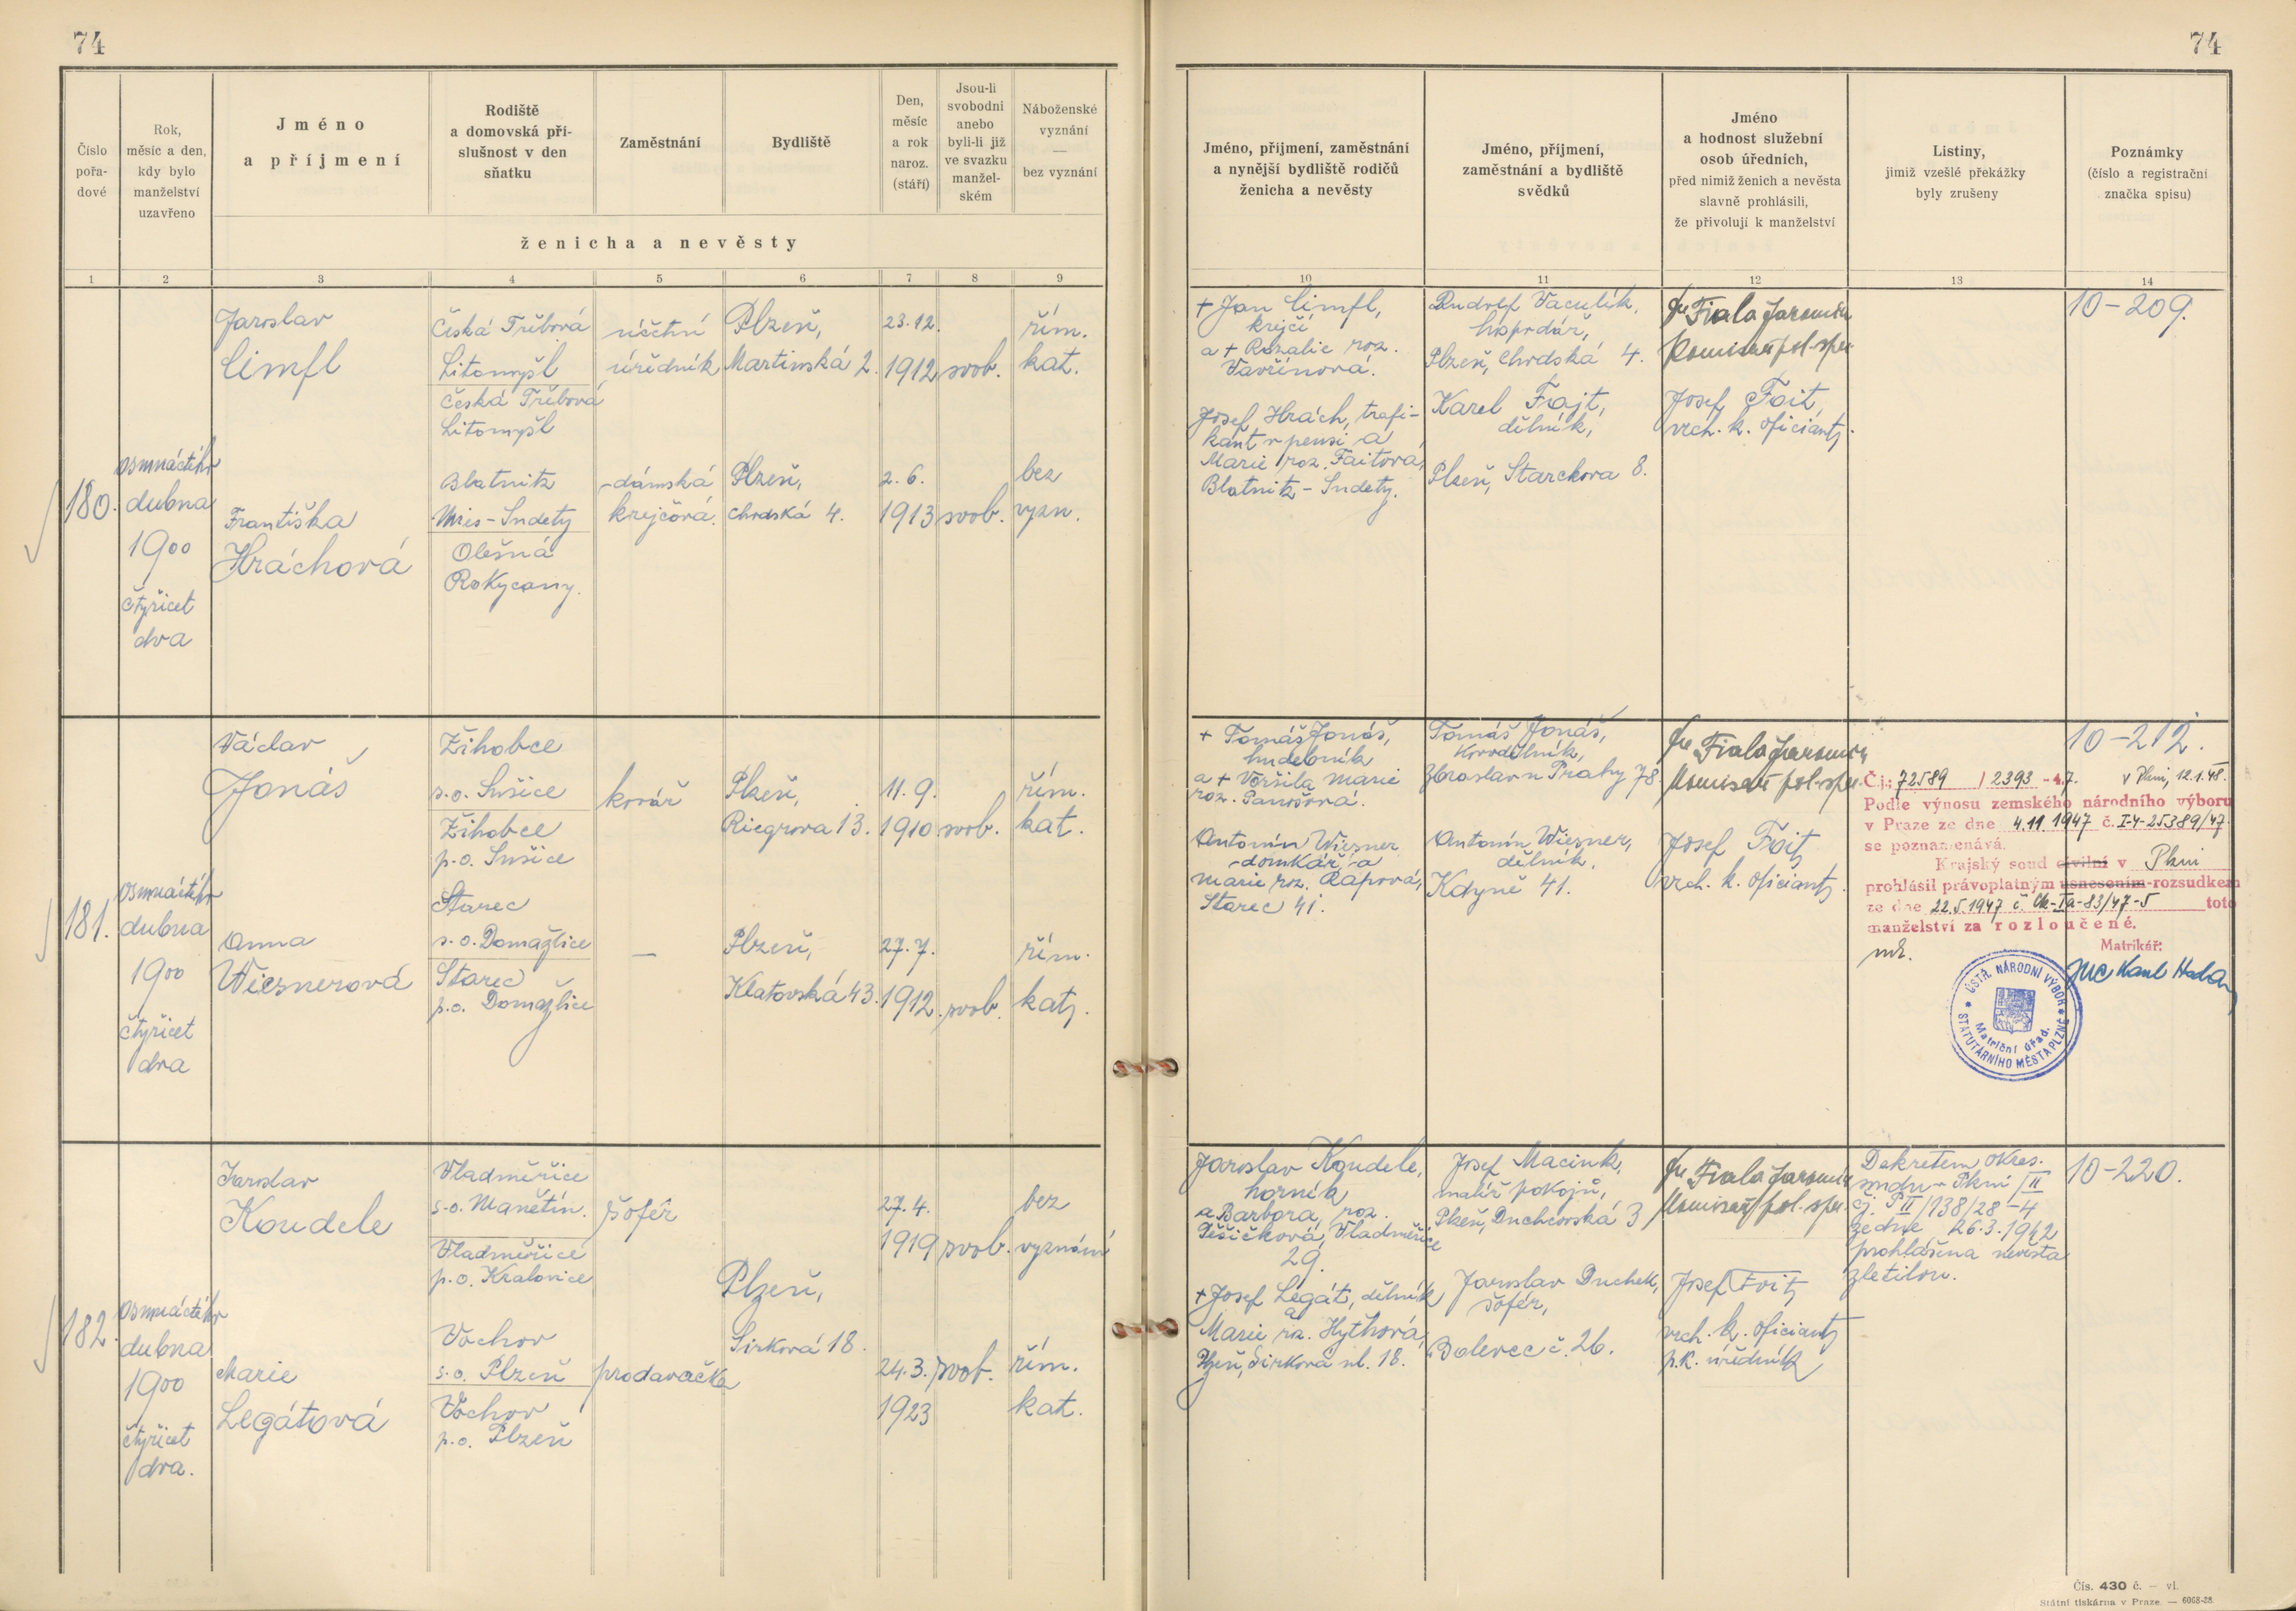 74
74
Číslo pořadové
Rok, měsíc a den, kdy bylo manželství uzavřeno
Jméno a příjmení
Rodiště a domovská příslušnost v den sňatku
Zaměstnání
Bydliště
Den, měsíc a rok naroz. (stáří)
Jsou-li svobodni anebo byli-li již ve svazku manželském
Náboženské vyznání — bez vyznání
ženicha a nevěsty
Jméno, příjmení, zaměstnání a nynější bydliště rodičů ženicha a nevěsty
Jméno, příjmení, zaměstnání a bydliště svědků
Jméno a hodnost služební osob úředních, před nimiž ženich a nevěsta slavně prohlásili, že přivolují k manželství
Listiny, jimiž vzešlé překážky byly zrušeny
Poznámky (číslo a registrační značka spisu)
1 2 3 4 5 6 7 8 9 10 11 12 13 14
180.
osmnáctého
dubna
1900
čtyřicet
dva
Jaroslav
Cimfl
Česká Třebová
Litomyšl
Česká Třebová
Litomyšl
účetní
úředník
Plzeň,
Martinská 2.
23.12.
1912
svob.
řím.
kat.
Františka
Hráchová
Blatnitz
Mies-Sudety
Olešná
Rokycany.
dámská
krejčová.
Plzeň,
Chodská 4.
2.6.
1913
svob.
bez
vyzn.
+ Jan Cimfl,
krejčí
a + Rozalie roz.
Vavřinová.
Josef Hrách, trafi-
kant v pensi a
Marie roz. Faitová,
Blatnitz - Sudety.
Rudolf Vaculík,
hospodář,
Plzeň, Chodská 4.
Karel Fojt,
dělník,
Plzeň, Starckova 8.
Fiala Jaromír
Komisař pol. spr.
Josef Foit,
vrch. k. oficiant.
10-209.
181.
osmnáctého
dubna
1900
čtyřicet
dva
Václav
Jonáš
Žihobce
s.o. Sušice
Žihobce
p.o. Sušice
kovář
Plzeň,
Riegrova 13.
11.9.
1910
svob.
řím.
kat.
Anna
Wiesnerová
Starec
s.o. Domažlice
Starec
p.o. Domažlice
—
Plzeň,
Klatovská 43.
27.7.
1912.
svob.
řím.
kat.
+ Tomáš Jonáš,
hudebník
a + Voršila Marie
roz. Panošová.
Antonín Wiesner
domkář a
Marie roz. Rápová,
Starec 41.
Tomáš Jonáš,
kovodělník,
Zbraslav u Prahy 78
Antonín Wiesner,
dělník,
Kdyně 41.
Fiala Jaromír
Komisař pol. spr.
Josef Foit
vrch. k. oficiant.
10-212.
Č.j.: 72589 / 2393 - 47. v Plzni, 12.1.48.
Podle výnosu zemského národního výboru
v Praze ze dne 4.11.1947 č. I-4-25389/47
se poznamenává.
Krajský soud civilní v Plzni
prohlásil právoplatným usnesením-rozsudkem
ze dne 22.5.1947 č. Ck-Ia-83/47-5 toto
manželství za rozloučené.
Matrikář:
ÚSTŘ. NÁRODNÍ VÝBOR
STATUTÁRNÍHO MĚSTA PLZNĚ
Matriční úřad.
182.
osmnáctého
dubna
1900
čtyřicet
dva.
Jaroslav
Koudele
Vladměřice
s.o. Manětín.
Vladměřice
p.o. Kralovice
šofér
Plzeň,
Sirková 18.
27.4.
1919
svob.
bez
vyznání
Marie
Legátová
Vochov
s.o. Plzeň
Vochov
p.o. Plzeň
prodavačka
24.3.
1923
svob.
řím.
kat.
Jaroslav Koudele,
horník
a Barbora roz.
Pěšičková, Vladměřice
29.
+ Josef Legát, dělník
a
Marie roz. Hythová,
Plzeň, Sirková ul. 18.
Josef Macink,
malíř pokojů,
Plzeň, Duchcovská 3
Jaroslav Duchek,
šofér,
Bolevec č. 26.
Fiala Jaromír
Komisař pol. spr.
Josef Foit
vrch. k. oficiant
p.k. úředník
Dekretem okres.
soudu v Plzni II
čj. P II/138/28-4
ze dne 26.3.1942
prohlášena nevěsta
zletilou.
10-220.
Čís. 430 č. — vl.
Státní tiskárna v Praze. — 6068-38.